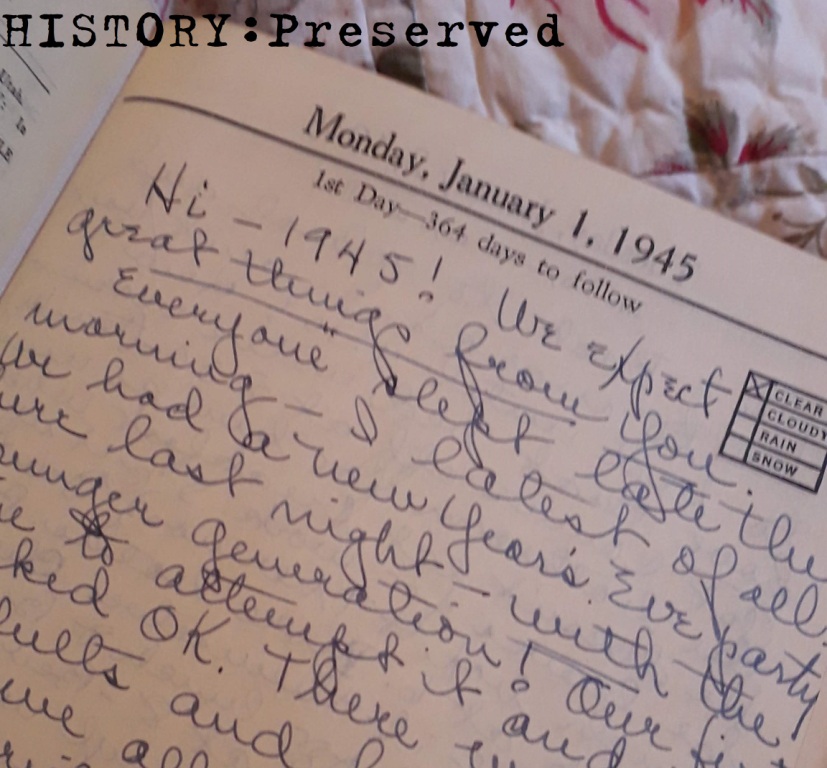 HISTORY:Preserved
Utah
Is
LE
Monday, January 1, 1945
1st Day—364 days to follow
CLEAR
CLOUDY
RAIN
SNOW
Hi - 1945! We expect
great things from you.
Everyone slept late this
morning - I latest of all.
We had a new Years Eve party
last night - with the
younger generation! Our first
to attempt it and
OK. There
and
all